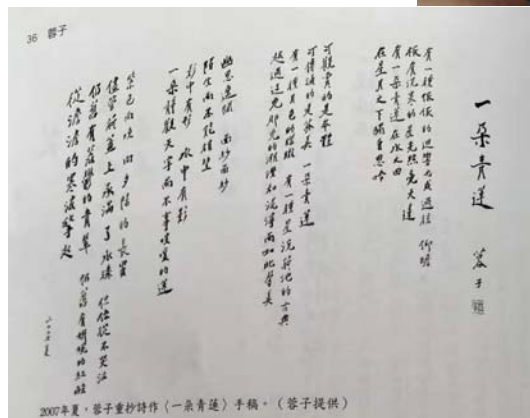 36 蓉子
一朵青蓮 蓉子
有一種低低的迴響也成過往 仰瞻
祇有沉寒的星光照亮天邊
有一朵青蓮在水之田
在星月之下獨自思吟
可觀賞的是本體
可傳誦的是芬美 一朵青蓮
有一種月色的朦朧 有一種星沉荷池的古典
越過這兒那兒的潮濕和泥濘而如此馨美
幽思遼闊 面紗面紗
陌生而不能相望
影中有形 水中有影
一朵靜觀天宇而不事喧嚷的蓮
紫色向晚 向夕陽的長窗
儘管荷蓋上承滿了水珠 但你從不哭泣
仍舊有蓊鬱的青翠 仍舊有妍婉的紅燄
從澹澹的寒波擎起
2007年夏,蓉子重抄詩作〈一朵青蓮〉手稿。(蓉子提供)